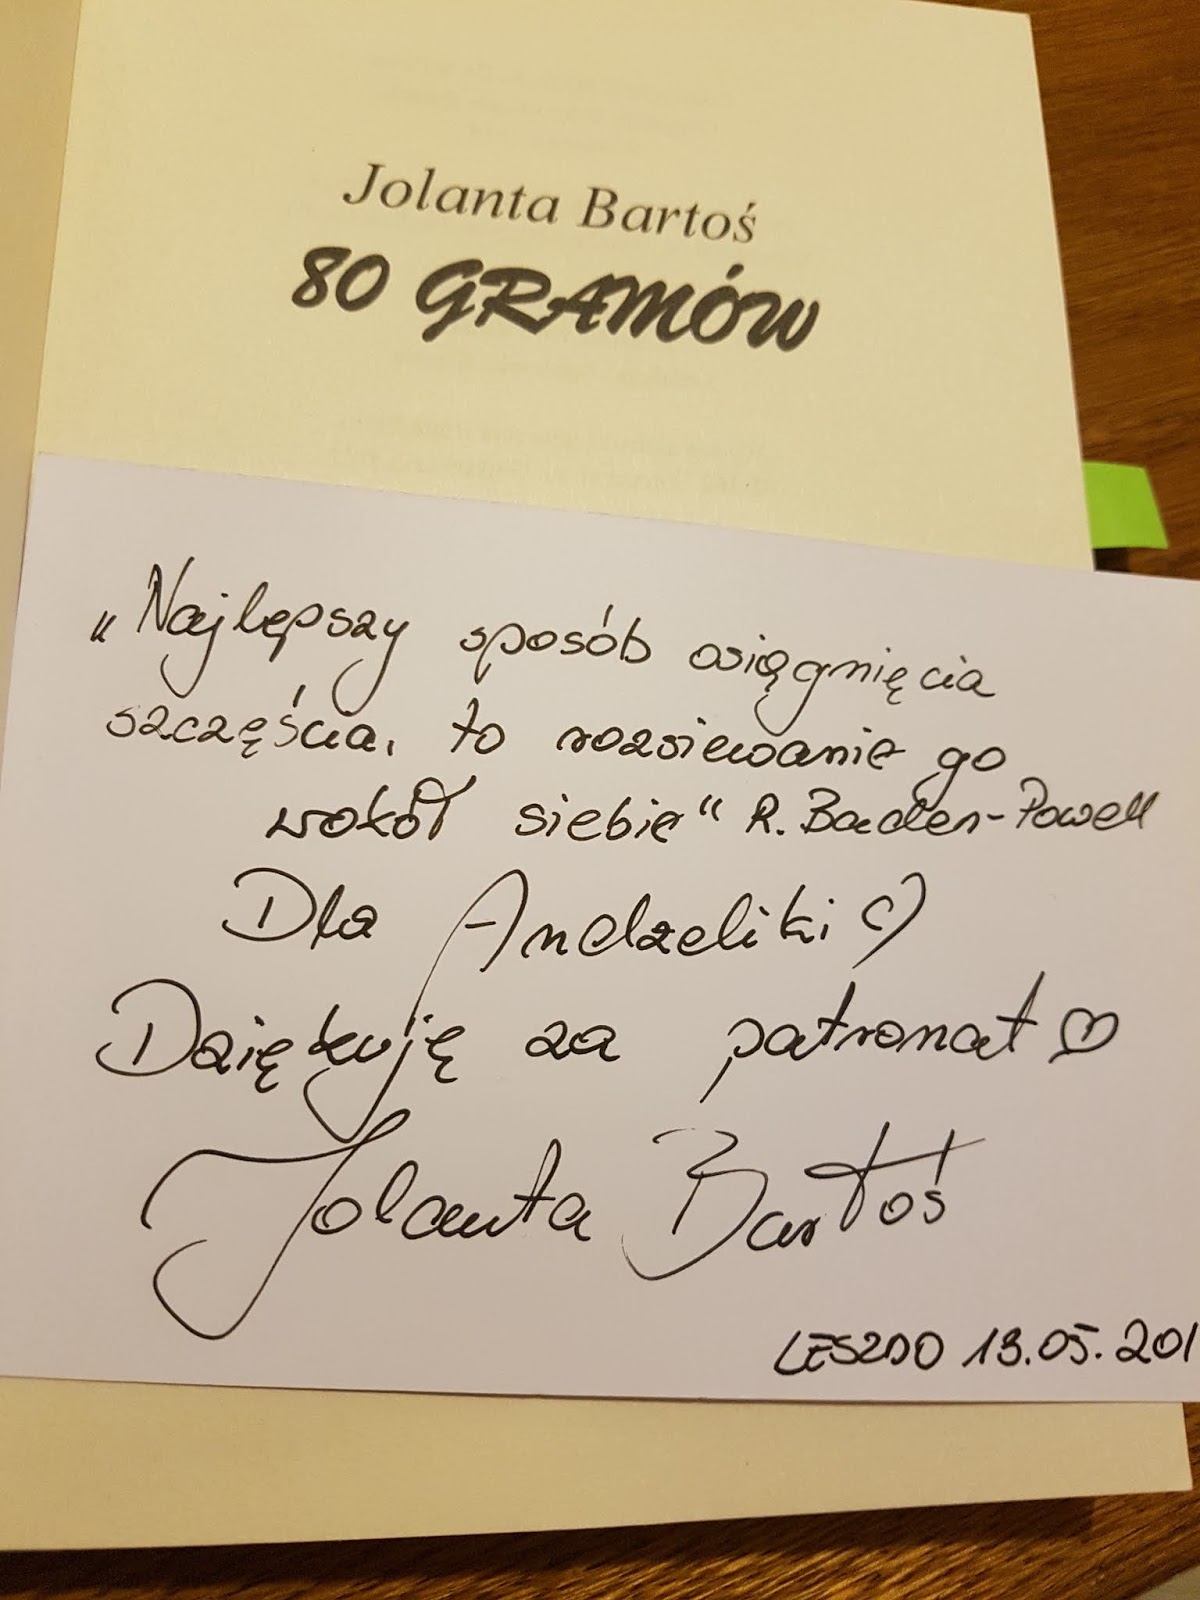 Jolanta Bartoś
80 GRAMÓW
„Najlepszy sposób osiągnięcia
szczęścia, to rozsiewanie go
wokół siebie“ R. Baden-Powell
Dla Andżeliki :)
Dziękuję za patronat ♡
Jolanta Bartoś
13.05.201